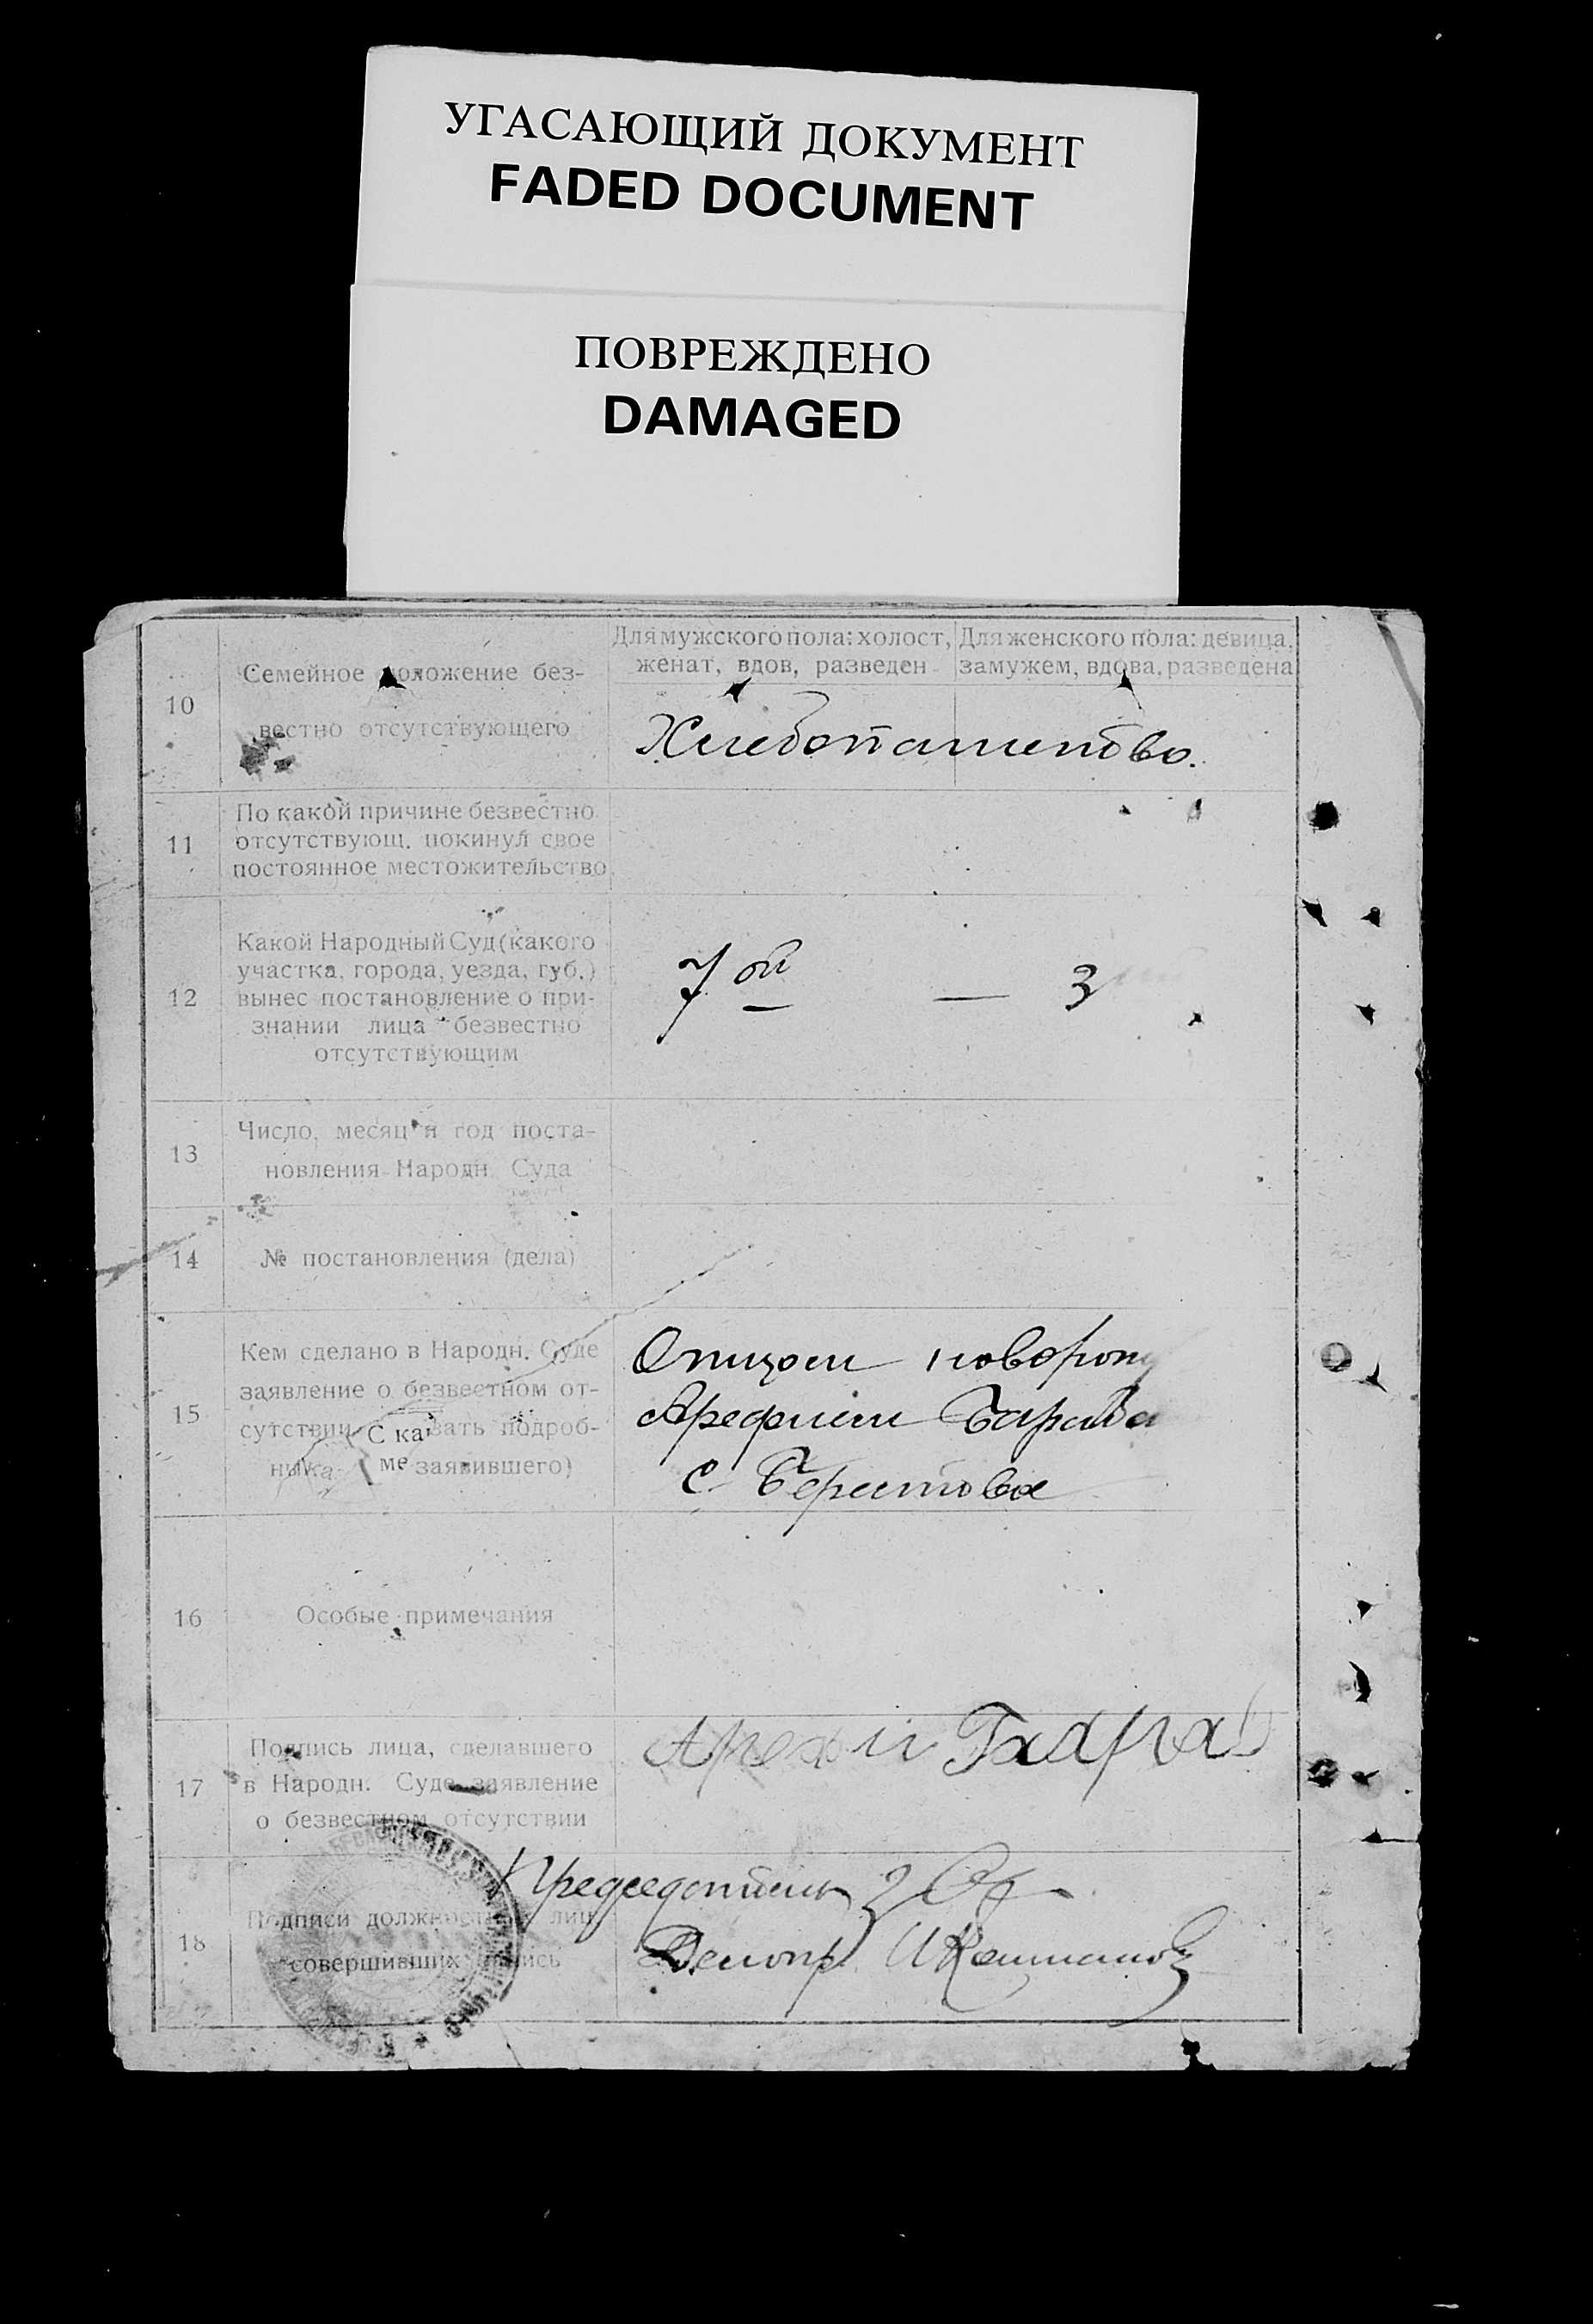 УГАСАЮЩИЙ ДОКУМЕНТ
FADED DOCUMENT
ПОВРЕЖДЕНО
DAMAGED
Для мужского пола: холост, женат, вдов, разведен
Для женского пола: девица, замужем, вдова, разведена
10
Семейное положение без-
вестно отсутствующего
Хлебопашество.
11
По какой причине безвестно
отсутствующ. покинул свое
постоянное местожительство
12
Какой Народный Суд (какого
участка, города, уезда, губ.)
вынес постановление о при-
знании лица безвестно
отсутствующим
7 ой — 3
13
Число, месяц и год поста-
новления Народн. Суда
14
№ постановления (дела)
15
Кем сделано в Народн. Суде
заявление о безвестном от-
сутствии
подроб-
заявившего)
Отцом
с. Берестова
16
Особые примечания
17
Подпись лица, сделавшего
в Народн. Суде заявление
о безвестном отсутствии
18
Подписи должностных лиц,
совершивших запись
Председатель
Делопр.